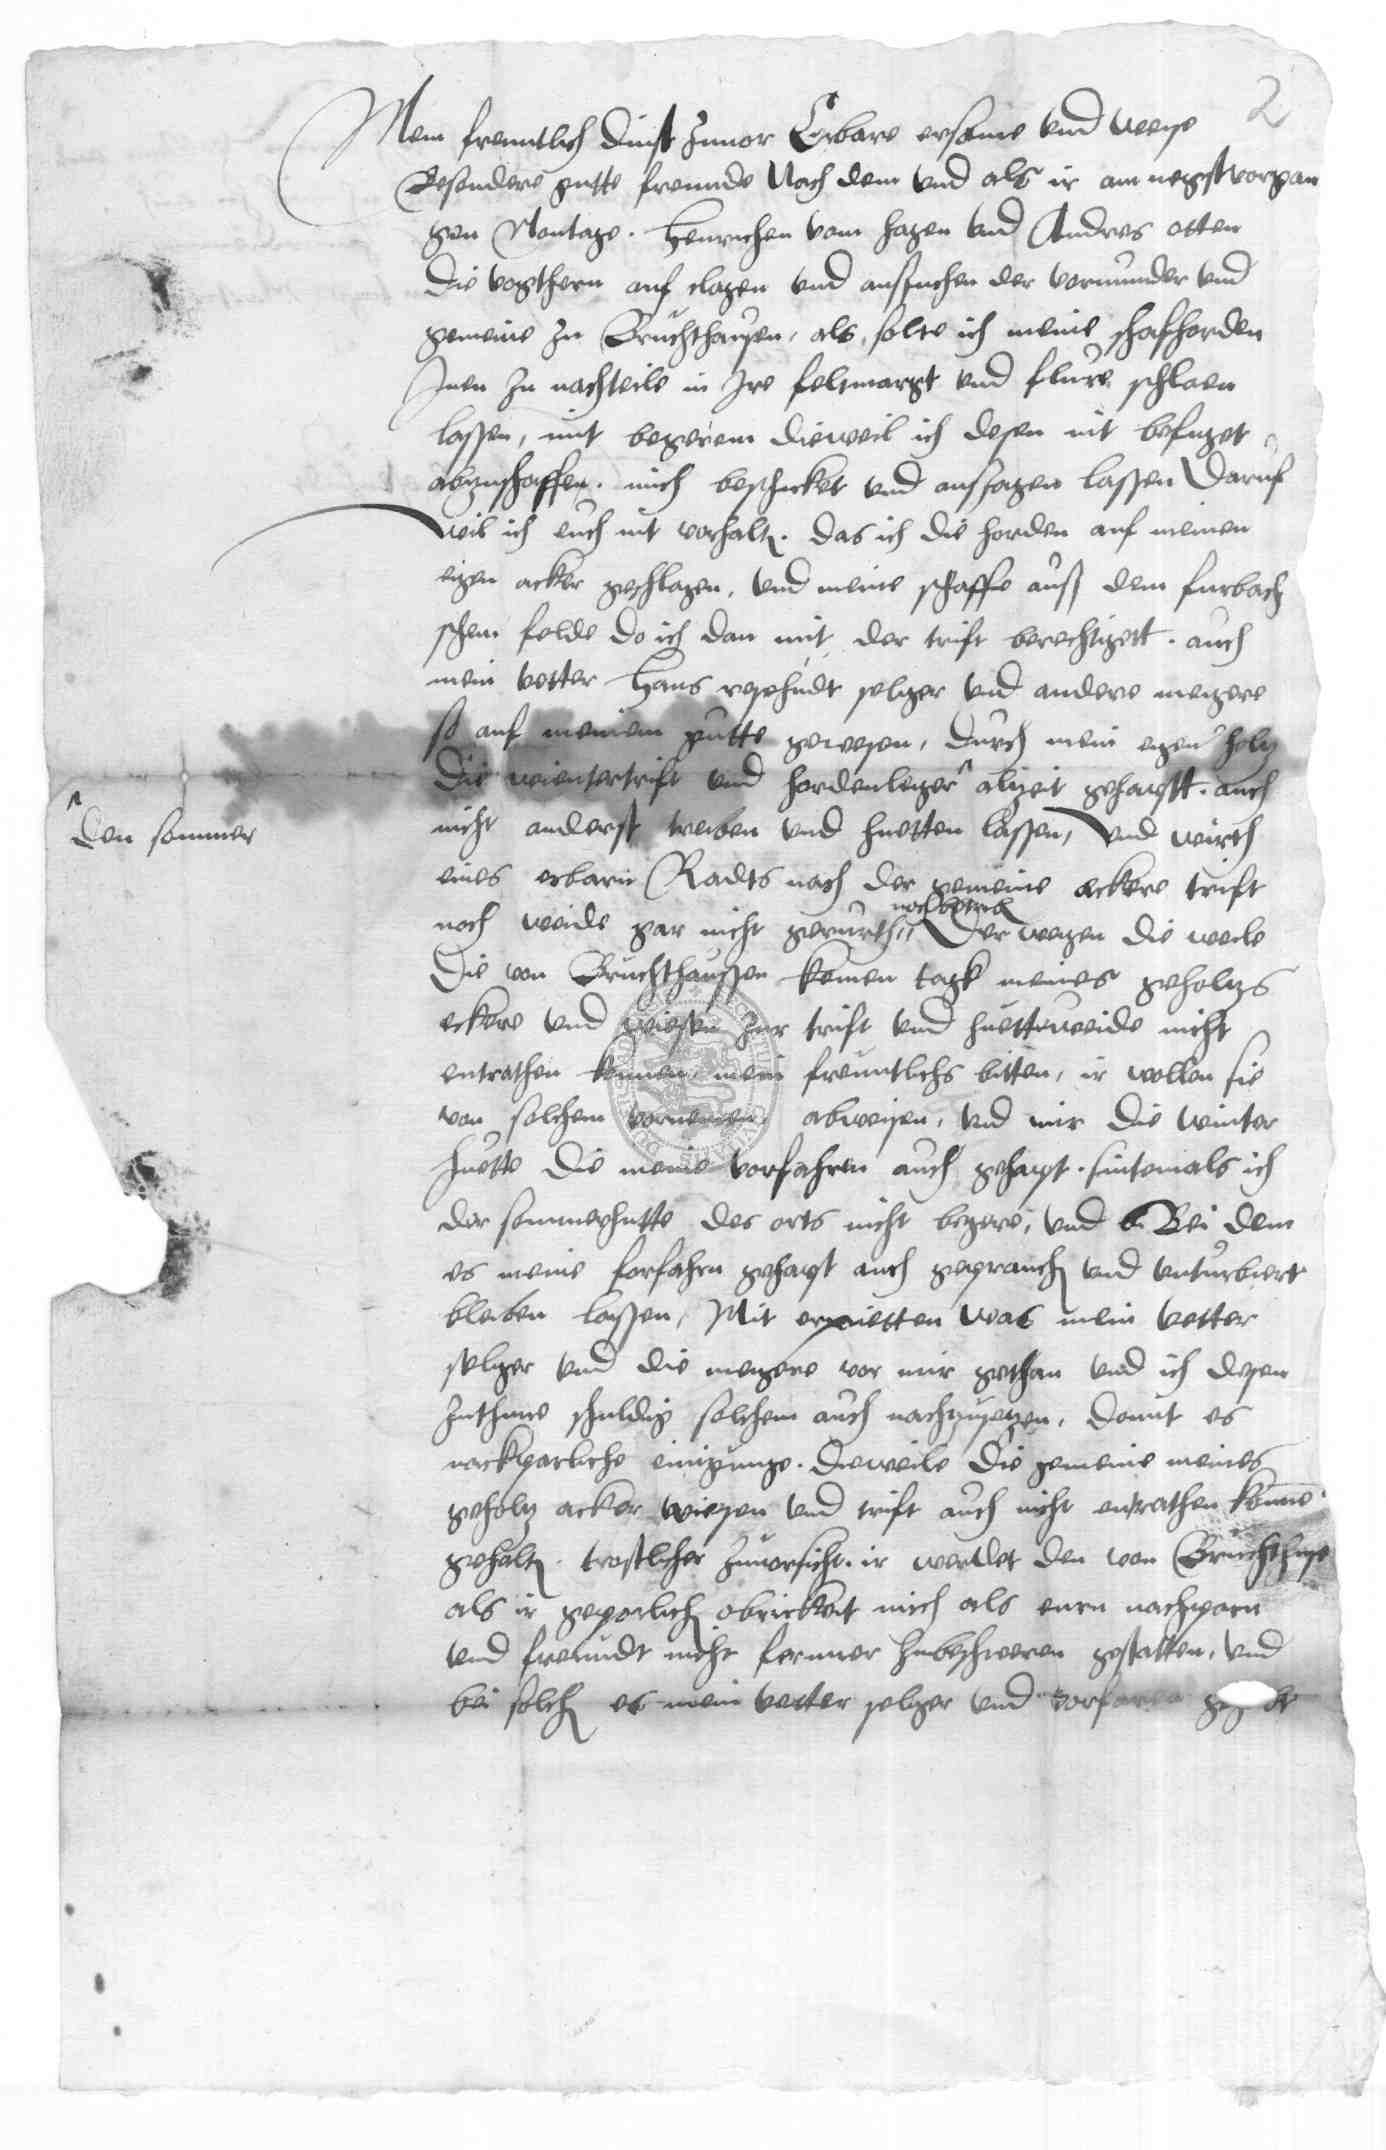 2
Mein freuntlich dinst zuuor Erbare ersame vnd weyse
Besondere gutte freunde Nach dem vnd als ir am negst vorgan
gen Montage. Henrichen vom Hagen vnd Andres otten
die vogthern auf clagen vnd ansuchen der vormunder vnd
gemeine zu Bruchthausen, als solte ich meine schafhorden
Inen zu nachteile in Ire feltmargt vnd flure schlaen
lassen, mit begerem dieweil ich desen nit befuget
abzuschaffen. mich beschicket vnd ansagen lassen Daruf
wil ich euch nit vorhalten. das ich die horden auf meinen
eigen acker geschlagen, vnd meine schaffe auß dem furbach
schem felde do ich dan mit der trift berechtigett. auch
mein vetter Hans selger vnd andere meygere
so auf meinem gutte gewesen, durch mein eigen holtz
die wientertrift vnd hordenleger alzeit gehapt. auch
^ den sommer
nicht anderst treiben vnd huetten lassen, Vnd wirth
eines erbarn Radts noch der gemeine ackere trift
noch weide gar nicht gerurth, Der wegen die weile
die von Bruchthaussen keinen tagk meines geholtzs
eckere vnd wiesen zur trift vnd huetteweide nicht
entrathen konnen, mein freuntlichs bitten, ir wollen sie
von solchem vornemen abweisen, vnd mir die winter
huette die meine vorfahren auch gehapt. sintemals ich
der sommerhutte des orts nicht begere, vnd Bei dem
es meine forfahrn gehapt auch geprauch vnd vnturbiert
bleiben lassen, Mit erpietten was mein vetter
selger vnd die meygere vor mir gethan vnd ich desen
zuthune schuldig solchem auch nachzusetzen, domit es
nachparliche einigunge. dieweile die gemeine meines
geholtz acker wiesen vnd trift auch nicht entrathen konne
gehalten. trostlicher zuuorsicht. ir werdet den von Bruchthuse
als ir geporlich obrickeit mich als euren nachparn
vnd freundt nicht ferner zubeschweren gestatten, vnd
bei solchen es mein vetter selger vnd vorfaren